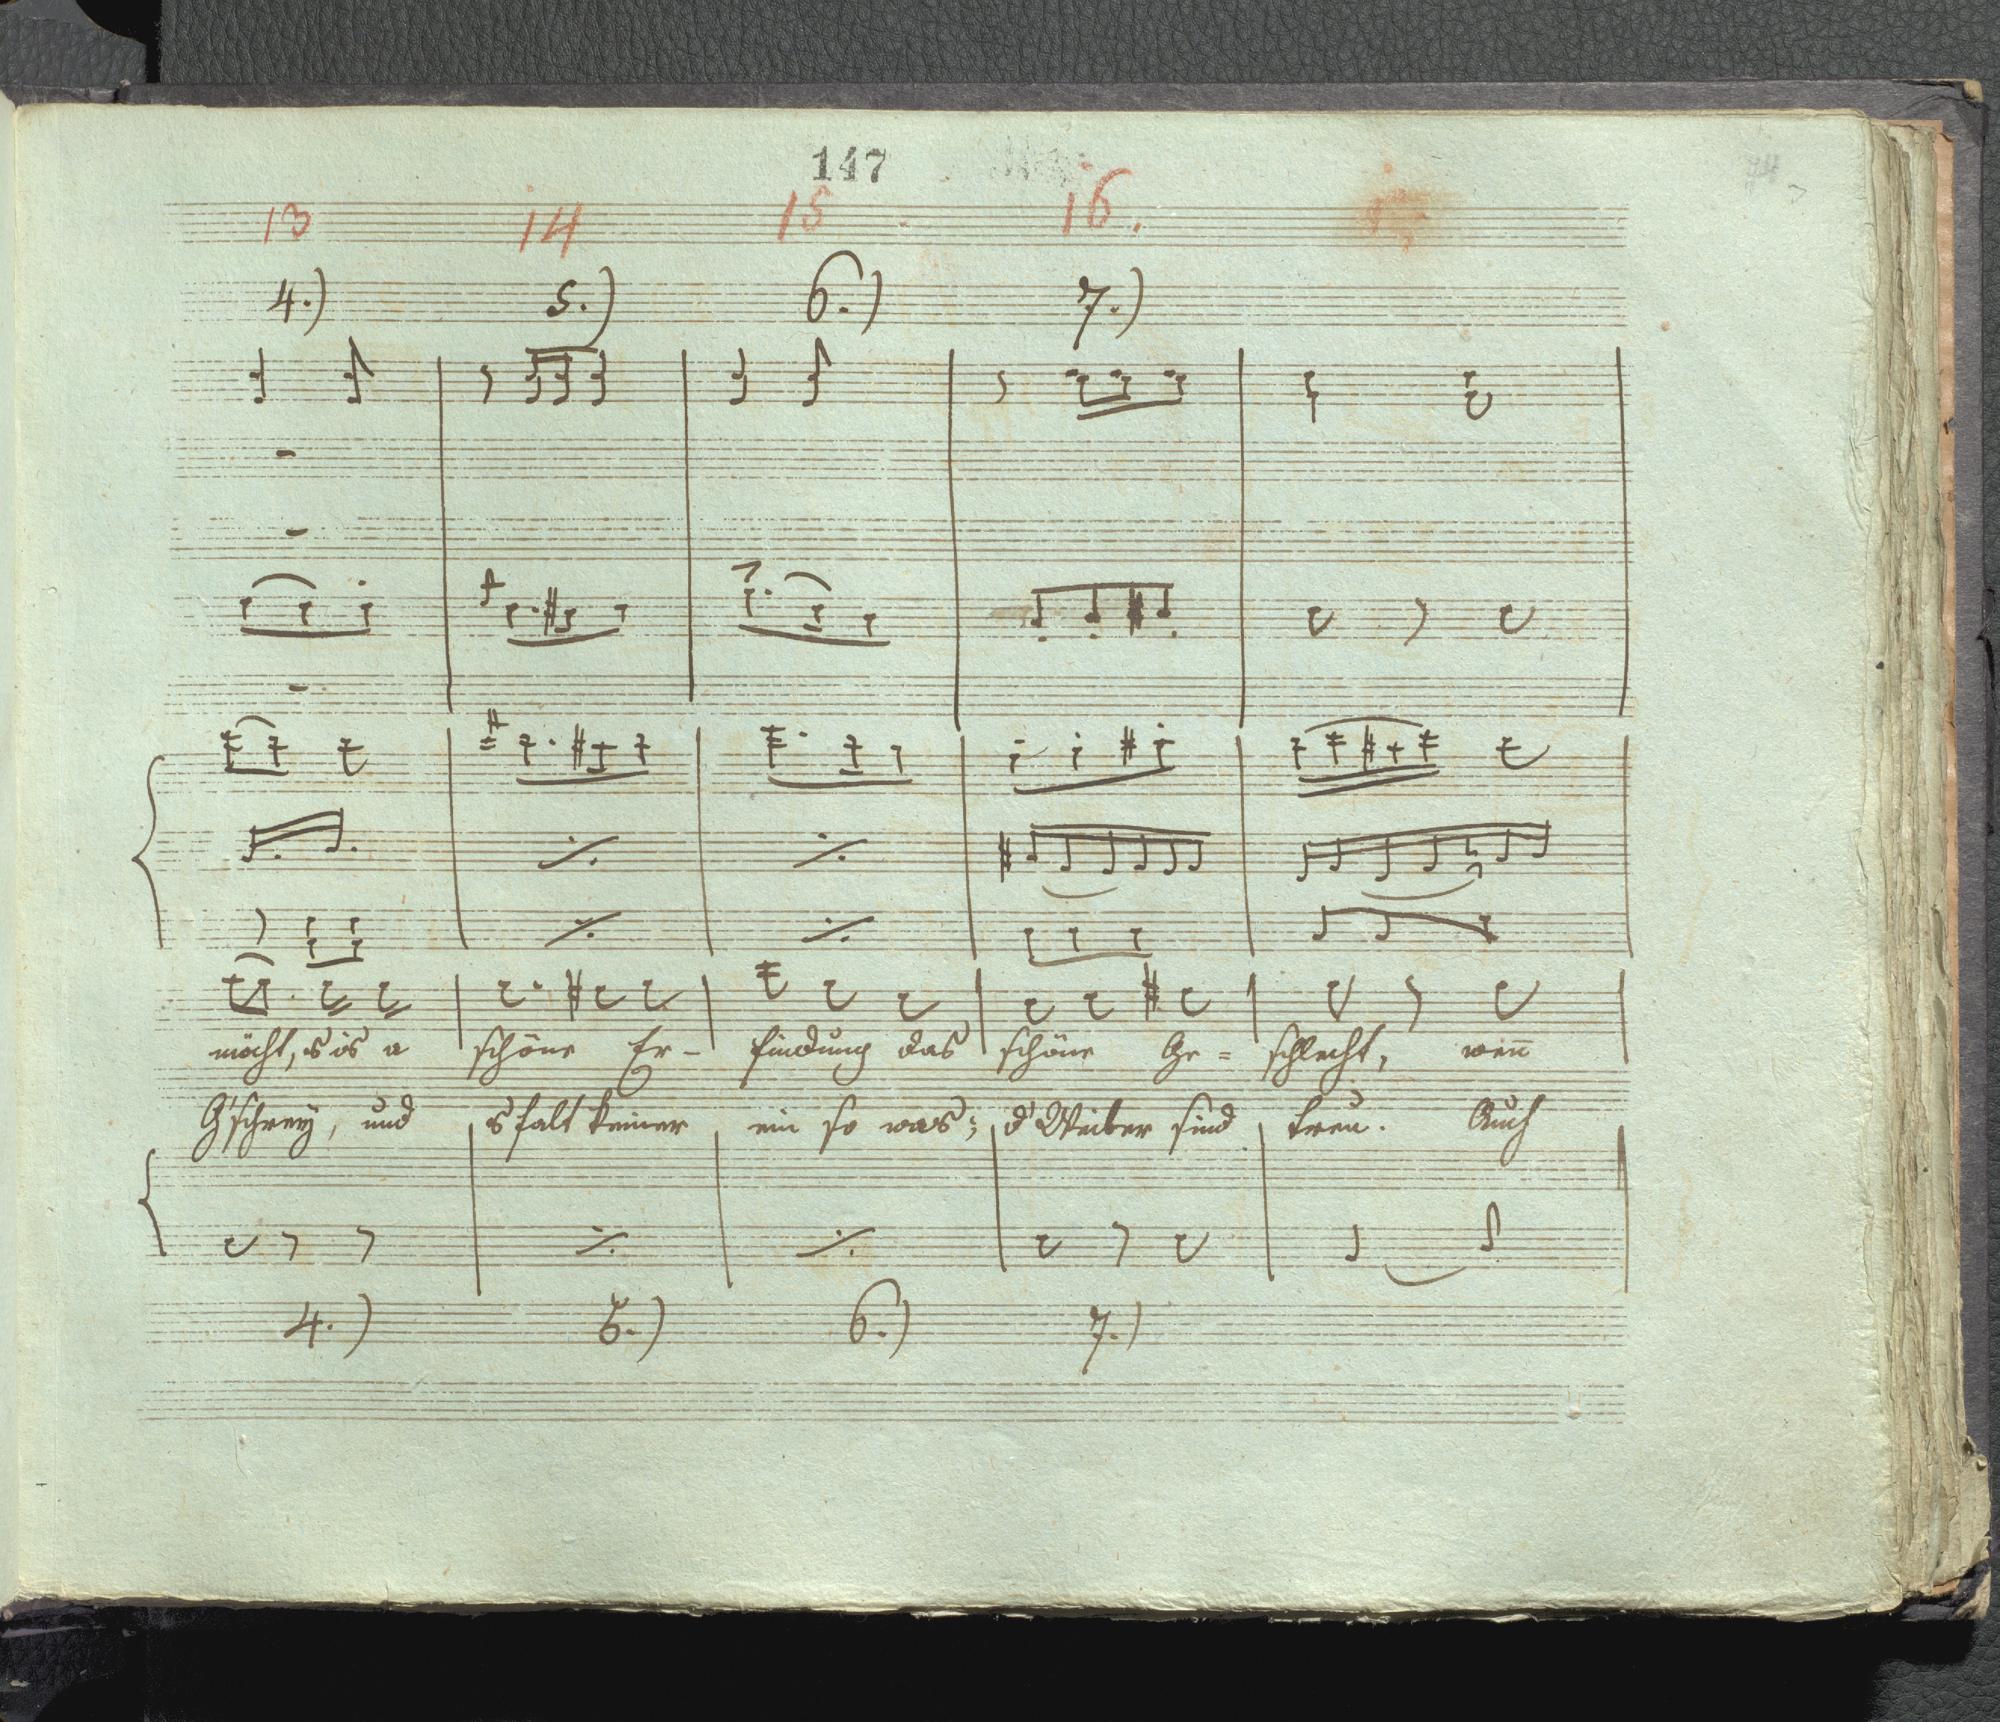 147
13 14 15 16.
4.) 5.) 6.) 7.)
möcht, s is a schöne Er- findung das schöne Ge= schlecht, wen̄
G'schrey, und s falt keiner ein so was; d' Weiber sind treu. Auch
4.) 5.) 6.) 7.)